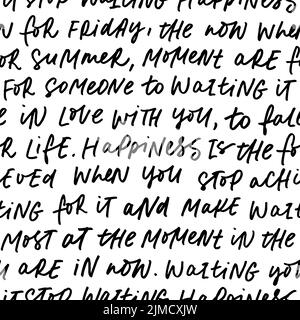 STOP WAITING HAPPINESS
N FOR FRIDAY, THE NOW WHEN
OR SUMMER, MOMENT ARE F
FOR SOMEONE TO WAITING IT
E IN LOVE WITH YOU, TO FAL
R LIFE. HAPPINESS IS THE FO
EVED WHEN YOU STOP ACHI
TING FOR IT AND MAKE WAIT
MOST AT THE MOMENT IN THE
U ARE IN NOW. WAITING YOU
IT STOP WAITING HAPPINESS
alamy
Image ID: 2JMCXJW
www.alamy.com